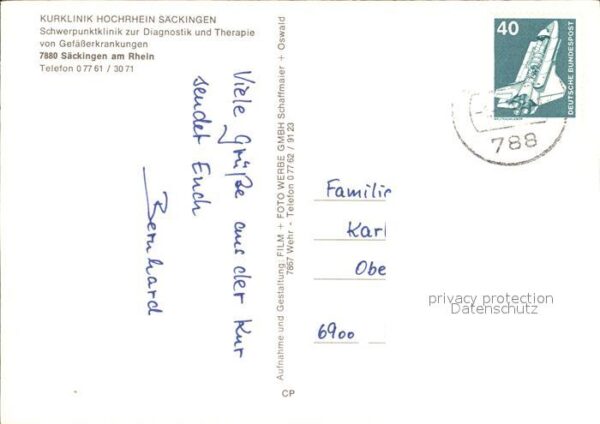 KURKLINIK HOCHRHEIN SÄCKINGEN
Schwerpunktklinik zur Diagnostik und Therapie
von Gefäßerkrankungen
7880 Säckingen am Rhein
Telefon 0 77 61 / 30 71
Viele Grüße aus der Kur
sendet Euch
Bernhard
Aufnahme und Gestaltung: FILM + FOTO WERBE GMBH Schaffmaier + Oswald
7867 Wehr - Telefon 0 77 62 / 91 23
CP
40
DEUTSCHE BUNDESPOST
788
Famili
Karl
Obe
6900
privacy protection
Datenschutz